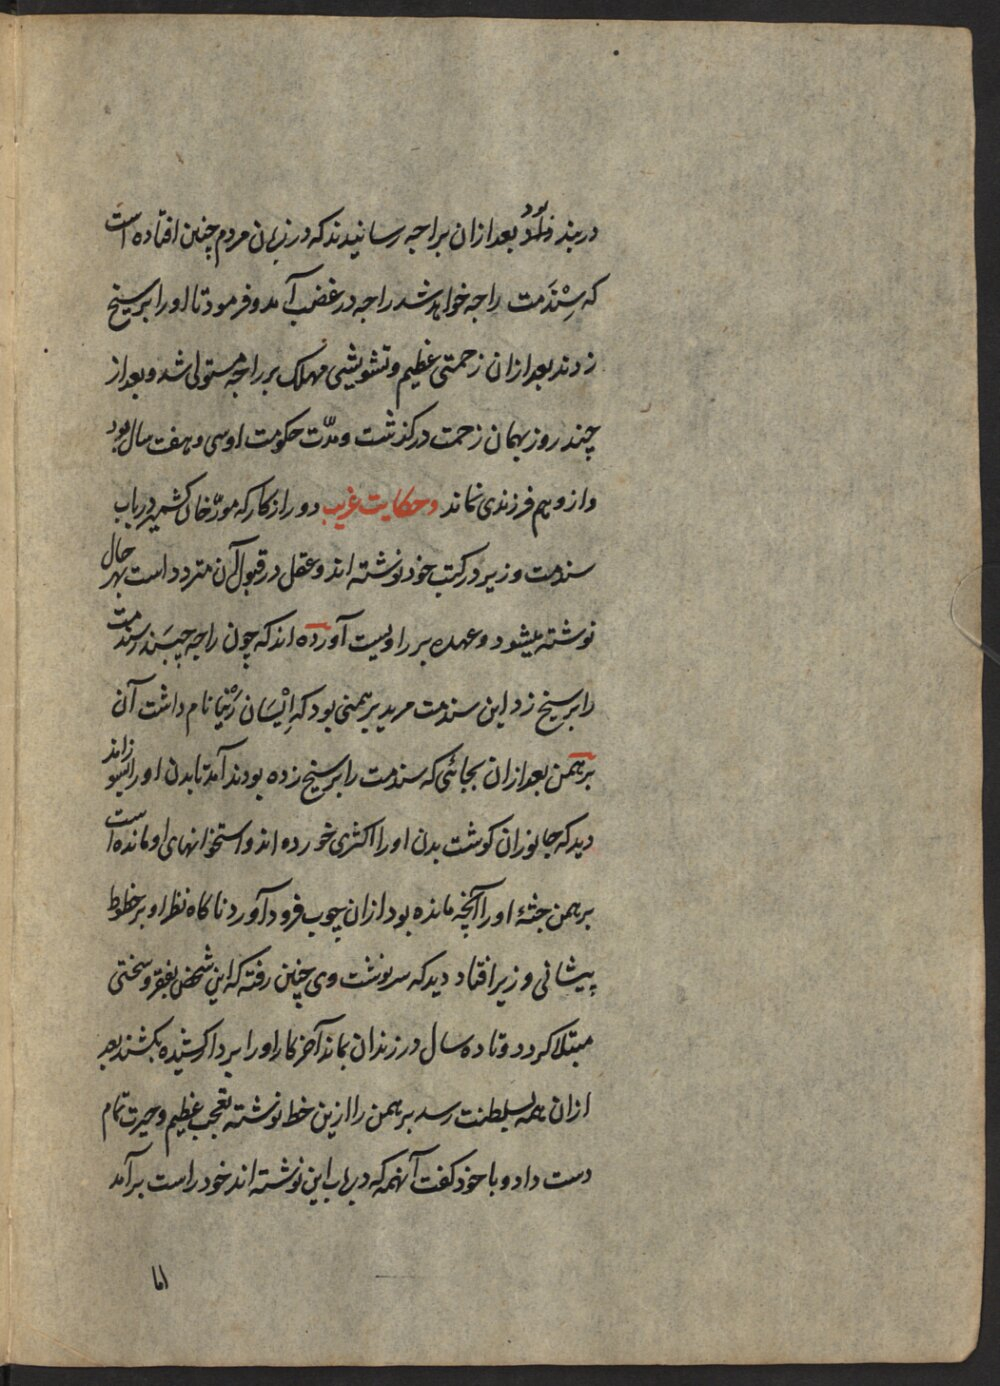 در بند بود بعد ازان براجه رسانیدند که در زبان مردم چنین افتاده است
که سِنْدَمت راجه خواهد شد راجه در غضب آمد و فرمود تا او را بر سیخ
زدند بعد ازان زحمتی عظیم و تشویشی مهلک بر راجه مستولی شد و بعد از
چند روز بهمان زحمت درکذشت و مدّت حکومت او سی و هفت سال بود
و ازو هیم فرزندی نماند و حکایت غریب دور از کار که مورّخان کشمیر در باب
سندمت وزیر در کتب خود نوشته اند و عقل در قبول آن متردد است بهر حال
نوشته میشود و عهده بر راویست آورده اند که چون راجه جیَنَدر سندمت
را بر سیخ زد این سندمت مرید برهمنی بود که اِیْسَان رَنْیا نام داشت آن
برهمن بعد ازان بجائی که سندمت را بر سیخ زده بودند آمد تا بدن او را بسوزاند
دید که جانوران کوشت بدن او را اکثری خورده اند و استخوانهای او مانده است
برهمن جثهٔ او را آنچه مانده بود ازان چوب فرود آورد ناکاه نظر او بر خطوط
پیشانی وزیر افتاد دید که سرنوشت وی چنین رفته که این شخص بفقر و سختی
مبتلا کردد و تا ده سال در زندان بماند آخر کار او را بر دار کشیده بکشند بعد
ازان همه بسلطنت رسد برهمن را ازین خط نوشته تعجب عظیم و حیرت تمام
دست داد و با خود کفت آنهمه که در باب این نوشته اند خود راست برآمد
اما